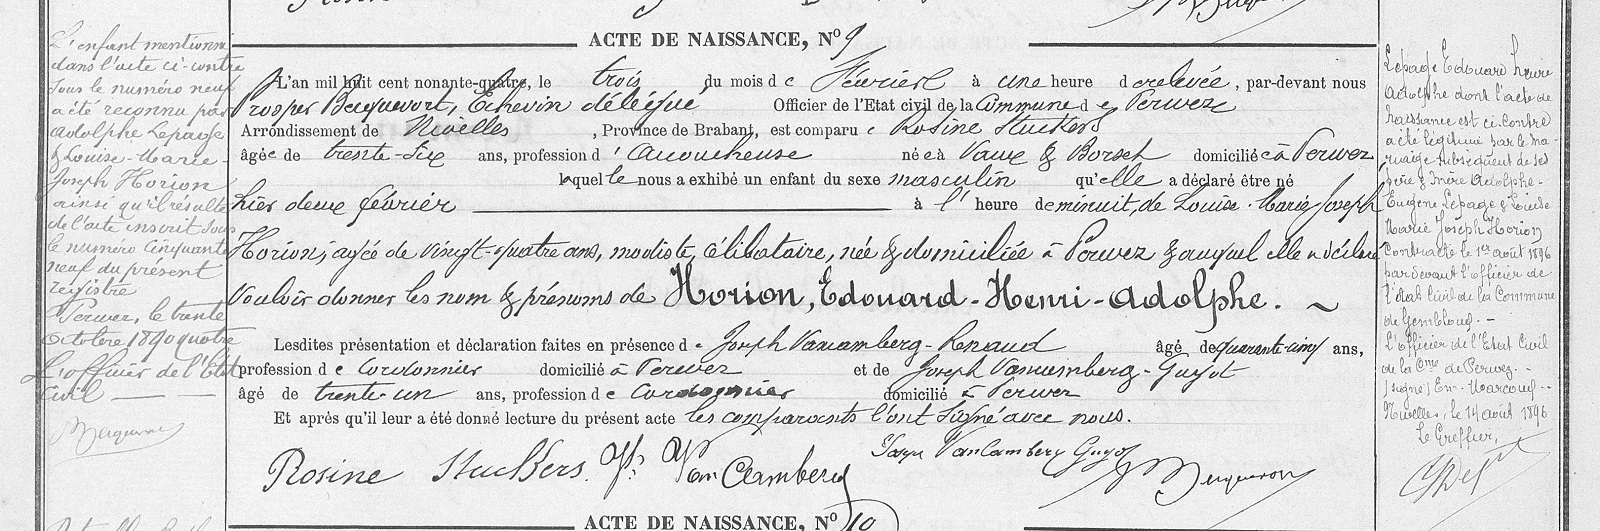 ACTE DE NAISSANCE, N° 9
L'an mil huit cent nonante-quatre, le trois du mois de Février à une heure de relevée, par-devant nous
Prosper Becquevort, Echevin délégué Officier de l'Etat civil de la Commune de Perwez
Arrondissement de Nivelles, Province de Brabant, est comparue Rosine Stuckers
âgée de trente-six ans, profession d'accoucheuse née à Vaux & Borset domiciliée à Perwez
laquelle nous a exhibé un enfant du sexe masculin qu'elle a déclaré être né
hier deux février à l'heure de minuit, de Louise-Marie-Joseph
Horion, âgée de vingt-quatre ans, modiste, célibataire, née & domiciliée à Perwez & auquel elle a déclaré
vouloir donner les nom & prénoms de Horion, Edouard-Henri-Adolphe.
Lesdites présentation et déclaration faites en présence de Joseph Vancamberg-Renaud âgé de quarante-cinq ans,
profession de Cordonnier domicilié à Perwez et de Joseph Vancamberg-Guyot
âgé de trente-un ans, profession de Cordonnier domicilié à Perwez
Et après qu'il leur a été donné lecture du présent acte les comparants l'ont signé avec nous.
Rosine Stuckers. Van Camberg
Joseph Vancamberg Guyot
ACTE DE NAISSANCE, N° 10
L'enfant mentionné
dans l'acte ci-contre
sous le numéro neuf
a été reconnu par
Adolphe Lepage
& Louise-Marie-
Joseph Horion
ainsi qu'il résulte
de l'acte inscrit sous
le numéro cinquante
neuf du présent
registre
Perwez, le trente
Octobre 1890 quatre
L'officier de l'Etat
Civil
Lepage Edouard henri
Adolphe dont l'acte de
naissance est ci-contre
a été légitimé par le ma-
riage subséquent de ses
père & mère Adolphe-
Eugène Lepage & Louise
Marie Joseph Horion
Contracté le 1er août 1896
par devant l'officier de
l'état civil de la Commune
de Gembloux.
L'officier de l'Etat Civil
de la Cne de Perwez.
(signé) Em. Marcoux
Nivelles, le 14 août 1896
Le Greffier,